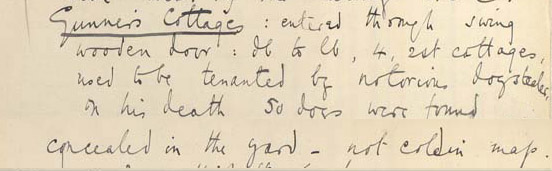 Gunners Cottages : entered through swing
wooden door : db to lb, 4, 2st cottages,
used to be tenanted by notorious dogstealer,
on his death 50 dogs were found
concealed in the yard - not cold in map.